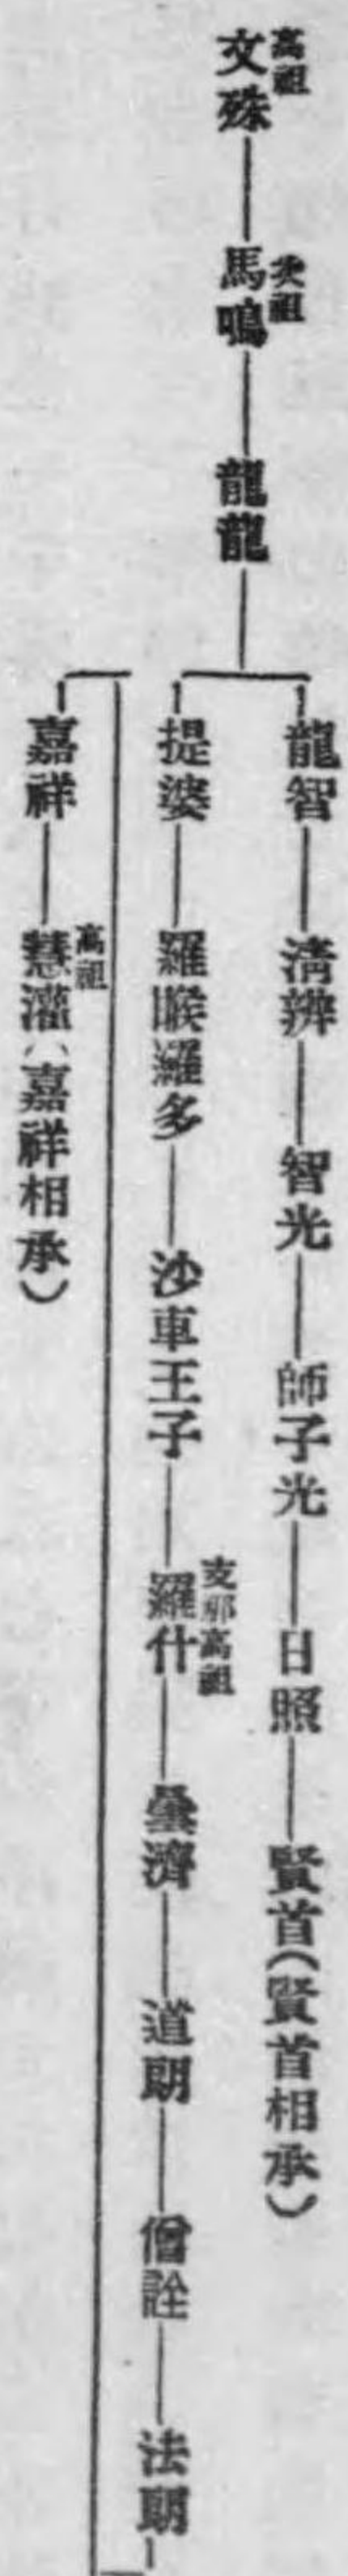 高祖
文殊
次祖
馬鳴
龍龍
龍智 清辨 智光 師子光 日照 賢首(賢首相承)
提婆 羅睺羅多 沙車王子
支那高祖
羅什 曇濟 道朗 僧詮 法朗
嘉祥
高祖
慧灌(嘉祥相承)